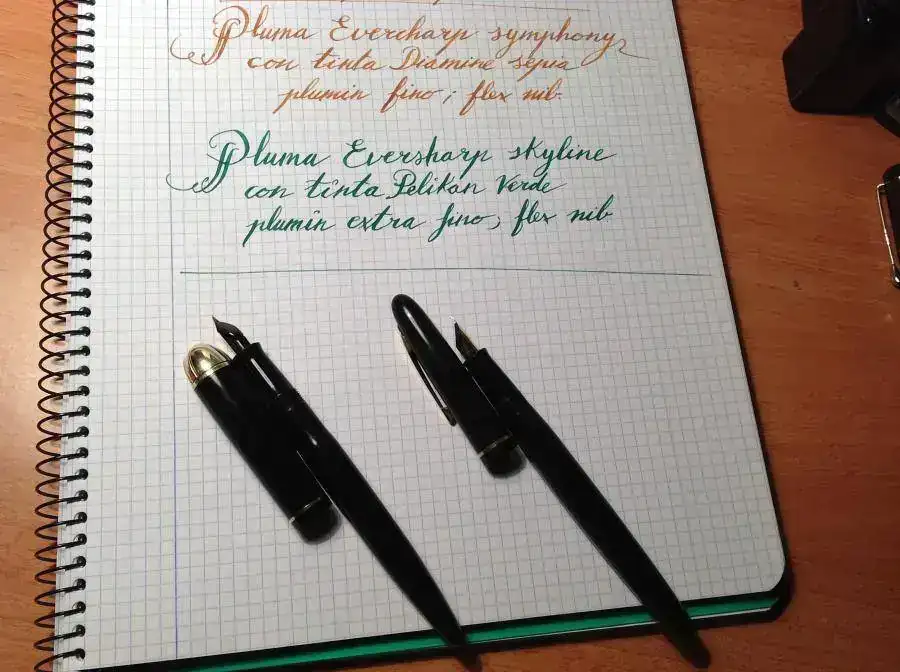 Pluma Eversharp symphony
con tinta Diamine sepia
plumín fino; flex nib.
Pluma Eversharp skyline
con tinta Pelikan Verde
plumín extra fino, flex nib